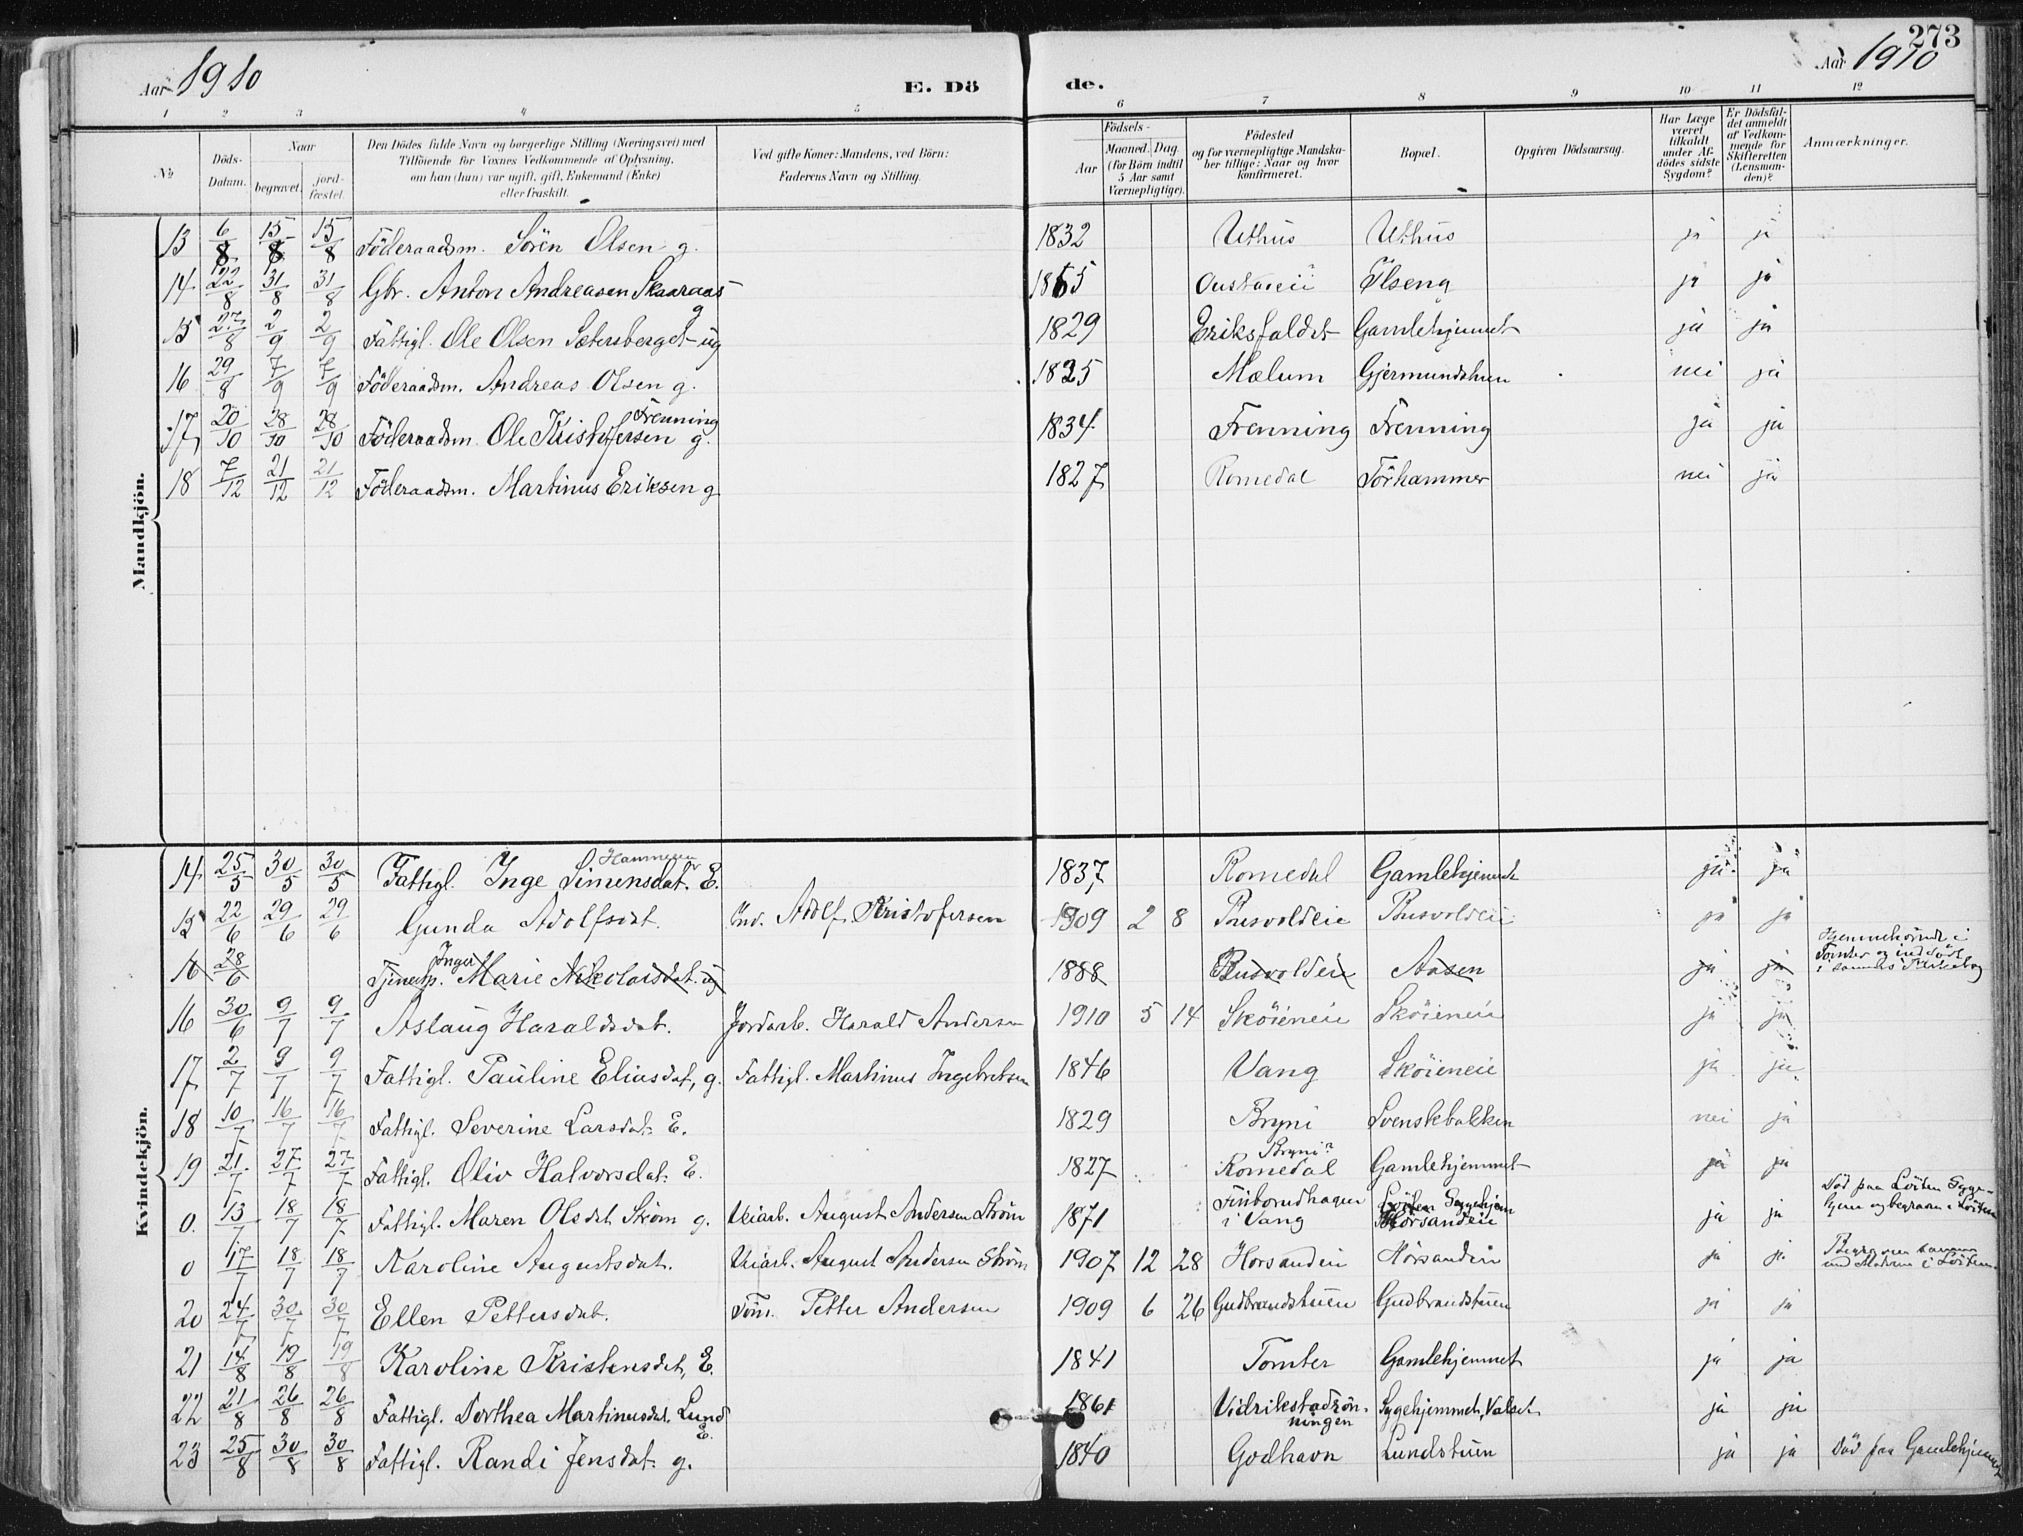 273
Aar 1910
E. Dö
de.
Aar 1910
1 2 3 4 5 6 7 8 9 10 11 12
No
Döds-Datum.
Naar
begravet.
jord-fæstet.
Den Dödes fulde Navn og borgerlige Stilling (Næringsvei) med
Tilföiende for Voxnes Vedkommende af Oplysning,
om han (hun) var ugift, gift, Enkemand (Enke)
eller fraskilt.
Ved gifte Koner: Mandens, ved Börn:
Faderens Navn og Stilling.
Födsels-
Aar
Maaned. Dag.
(for Börn indtil
5 Aar samt
Værnepligtige).
Födested
og for værnepligtige Mandska-
ber tillige: Naar og hvor
konfirmeret.
Bopæl.
Opgiven Dödsaarsag.
Har Læge
været
tilkaldt
under Af-
dödes sidste
Sygdom?
Er Dödsfal-
det anmeldt
af Vedkom-
mende for
Skifteretten
(Lensman-
den)?
Anmærkninger.
Mandkjön.
13 6/8 15/8 15/8 Föderaadsm. Sören Olsen g. 1832 Uthus Uthus ja ja
14 22/8 31/8 31/8 Gbr. Anton Andreasen Skaaraas g 1865 Ölseng ja ja
15 27/8 2/9 2/9 Fattigl. Ole Olsen Sætersberget ug 1829 Eriksfaldet Gamlehjemmet ja ja
16 29/8 7/9 7/9 Föderaadsm. Andreas Olsen g. 1825 Mælum Gjermundshuen nei ja
17 20/10 28/10 28/10 Föderaadsm. Ole Kristofersen Frenning g. 1834 Frenning Frenning ja ja
18 7/12 21/12 21/12 Föderaadsm. Martinus Eriksen g 1827 Romedal Törhammer nei ja
Kvindekjön.
14 25/5 30/5 30/5 Fattigl. Inge Simensdat. Hammeren E. 1837 Romedal Gamlehjemmet ja ja
15 22/6 29/6 29/6 Gunda Adolfsdat. Ind. Adolf Kristofersen 1909 2 8 Busvoldeie Busvoldeie ja ja
16 28/6 Tjenesp. Inger Marie Nikolaisdat. ug 1888 Busvoldeie Aasen ja ja Hjemmehörende i
Tomter og indfört
i sammes Kirkebog
16 30/6 9/7 9/7 Aslaug Haraldsdat. Jordarb. Harald Andersen 1910 5 14 Sköieneie Sköieneie ja ja
17 2/7 9/7 9/7 Fattigl. Pauline Eliasdat, g. Fattigl. Martinus Ingebretsen 1846 Vang Sköieneie ja ja
18 10/7 16/7 16/7 Fattigl. Severine Larsdat. E. 1829 Bryni Svenskebakken nei ja
19 21/7 27/7 27/7 Fattigl. Oliv Halvorsdat. E. 1827 Bryni? Romedal Gamlehjemmet ja ja
0. 13/7 18/7 18/7 Fattigl. Maren Olsdat Ström g. Veiarb. August Andersen Ström 1871 Finborudhagen
i Vang Löiten Sygehjem
Horsandeie ja ja Död paa Löiten Syge-
hjem og begraven i Löiten
0 17/7 18/7 18/7 Karoline Augustsdat. Veiarb. August Andersen Ström 1907 12 28 Horsandeie Horsandeie ja ja Begraven sammen
med Moderen i Löiten.
20 24/7 30/7 30/7 Ellen Pettersdat. Töm. Petter Andersen 1909 6 26 Gudbrandstuen Gudbrandstuen ja ja
21 14/8 19/8 19/8 Karoline Kristensdat, E. 1841 Tomter Gamlehjemmet ja ja
22 21/8 26/8 26/8 Fattigl. Dorthea Martinusdat. Lund E. 1861 Vidrikstadrön-
ningen Sygehjemmet, Valset ja ja
23 25/8 30/8 30/8 Fattigl. Randi Jensdat. g. 1840 Godhavn Lundstuen ja ja Död paa Gamlehjemmet